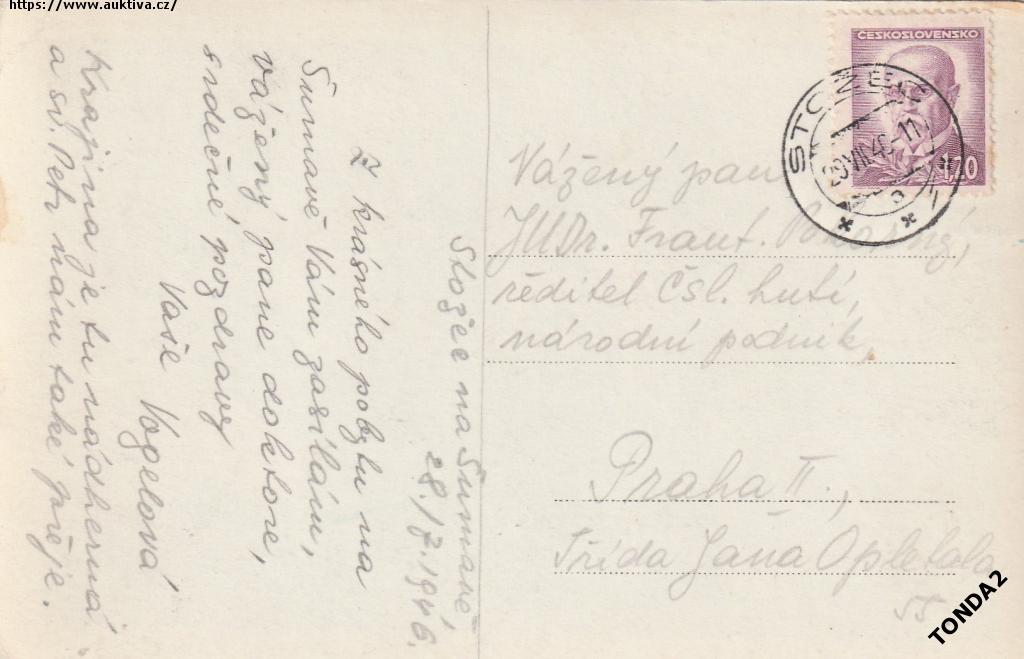 https://www.auktiva.cz/
Stožec na Šumavě,
28./7.1946.
Z krásného pobytu na
Šumavě Vám zasílám,
vážený pane doktore,
srdečné pozdravy
Vaše Vogelová
Krajina je tu nádherná
a sv. Petr nám také přeje.
ČESKOSLOVENSKO
1,20
STOŽEC
29.VII.46-11
Vážený pan
JUDr. Frant. Pokorný,
ředitel Čsl. hutí,
národní podnik,
Praha II.,
Třída Jana Opletala
55
TONDA2